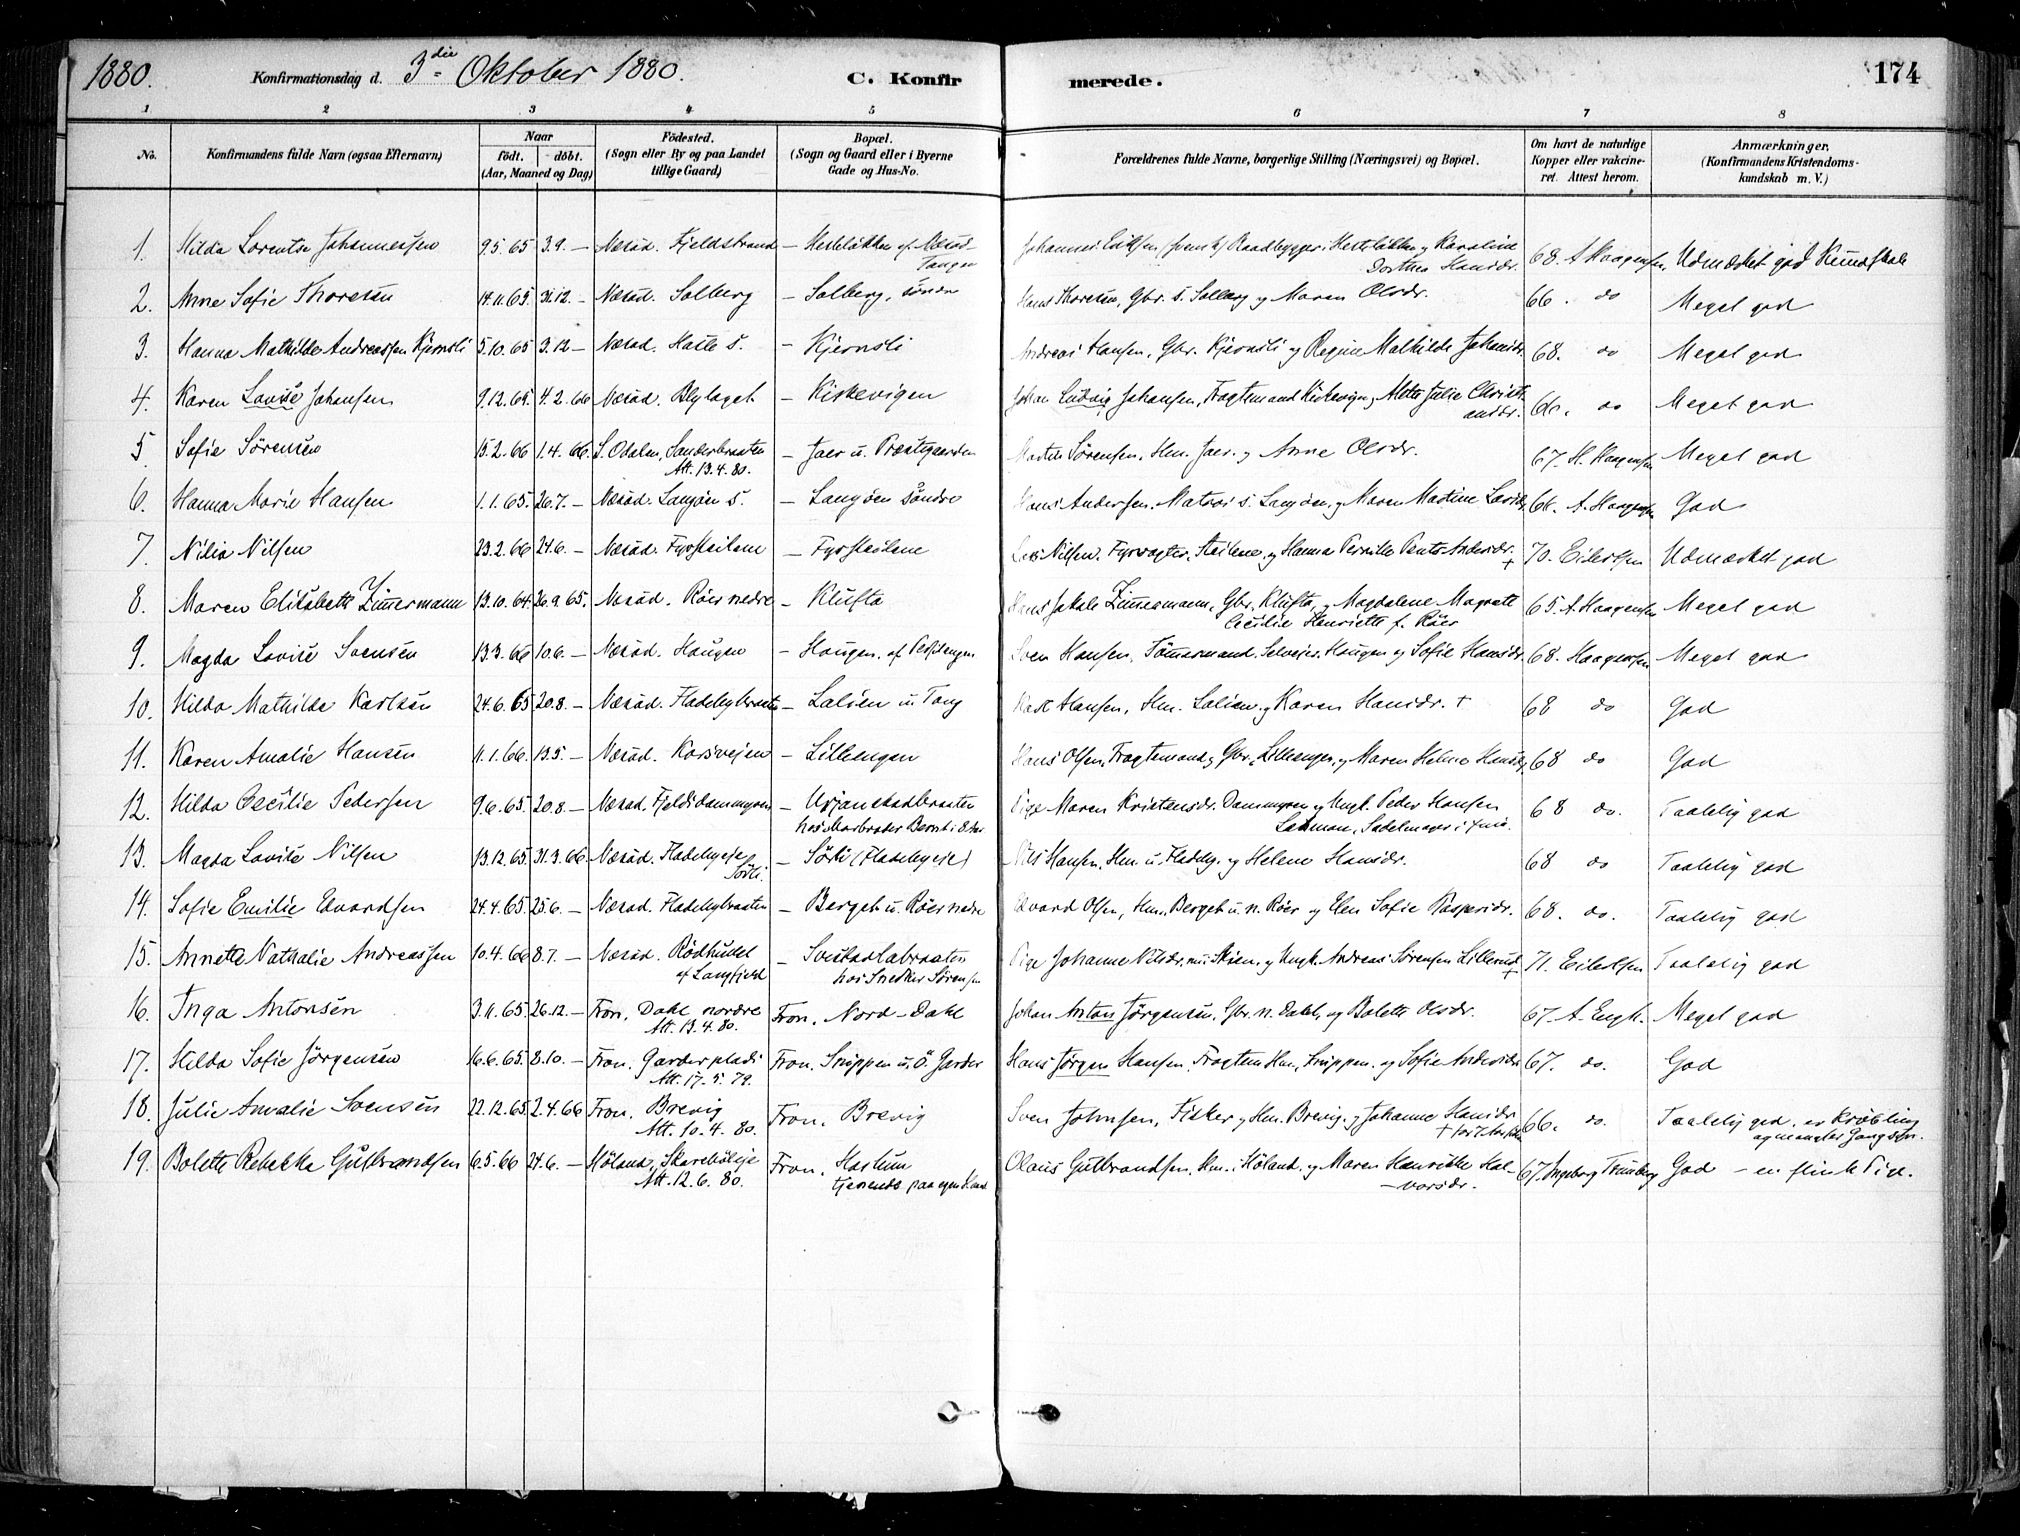 1880. Konfirmationsdag d. 3die Oktober 1880. C. Konfirmerede. 174
1 2 3 4 5 6 7 8
No. Konfirmandens fulde Navn (ogsaa Efternavn) Naar födt. döbt. (Aar, Maaned og Dag) Födested. (Sogn eller By og paa Landet tillige Gaard) Bopæl. (Sogn og Gaard eller i Byerne Gade og Hus-No. Forældrenes fulde Navne, borgerlige Stilling (Næringsvei) og Bopæl. Om havt de naturlige Kopper eller vakcineret. Attest herom. Anmærkninger. (Konfirmandens Kristendomskundskab m. V.)
1. Hilda Lorentse Johannessen 9.5.65 3.9. – Næsod. Fjeldstrand – Hesteløkken af Næsod Tangen Johannes Eriksen Baadbygger, Hesteløkken og Karoline Dorthea Hansdr. 68. A Haagensen Udmærket god Kundskab
2. Anne Sofie Thoresen 14.11.65. 31.12. – Næsod. Solberg – Solberg, søndre Hans Thoresen, Gbr. s. Solberg og Maren Olsdr. 66. do Meget god
3. Hanna Mathilde Andreassen Kjernsli 5.10.65 3.12 – Næsod. Hasle s. – Kjernsli Andreas Hansen, Gbr. Kjernsli og Regine Mathilde Johansdr. 68. do Meget god
4. Karen Lovise Johansen 9.12.65. 4.2.66 Næsod. Blylaget – Kirkevigen Johan Ludvig Johansen, Fragtemand Kirkevigen og Mette Julie Christiansdr. 66. do Meget god
5. Sofie Sørensen 15.2.66 1.4.66. S. Odalen, Sanderbraaten Att. 13.4.80. – Jaer u. Præstegaarden Martin Sørensen, Hm. Jaer. og Anne Olsdr. 67. H. Haagensen Meget god
6. Hanna Marie Hansen 1.1.65. 26.7. – Næsod. Langøen s. – Langøen søndre Hans Andersen. Matros s. Langøen, og Maren Martine Larsdr. 66. A. Haagensen God
7. Nilia Nilsen 23.2.66 24.6. – Næsod. Fyrsteilene – Fyrsteilene Lars Nilsen. Fyrvogter. Steilene, og Hanna Pernille Andersdr. + 70. Eilertsen Udmærket god
8. Maren Elisabeth Zimmermann 13.10.64. 26.9.65. Næsod. Røer nedre – Klufta Hans Jakob Zimmermann, Gbr. Klufta, og Magdalene Magrete Cecilie Henriette f. Røer 65. A. Haagensen Meget god
9. Magda Lovise Svensen 13.3.66 10.6. – Næsod. Haugen – Haugen. af Sven Hansen, Tömmermand. Selveier. Haugen og Sofie Hansdr. 68. Haagensen Meget god
10. Hilda Mathilde Karlsen 24.6.65 20.8. – Næsod. Fladebybraaten – Lalien u. Tang Karl Hansen, Hm. Lalien, og Karen Hansdr. + 68 do God
11. Karen Amalie Hansen 11.1.66. 13.5. – Næsod. Korsvejen – Lillengen Hans Olsen, Fragtemand og Gbr. Lillengen, og Maren Helene Hansdr. 68 do God
12. Hilda Cecilie Pedersen 9.6.65 20.8. – Næsod. Fjeldsdammyren – Urjanstadbraaten Pige Maren Kristensdr. Dammyren og Ungk. Peder Hansen Sadelmager i 68 do. Taalelig god
13. Magda Lovise Nilsen 13.12.65. 31.3.66. Næsod. Fladebyeje Sørli. – Sørli (Fladebyeje) Nils Hansen. Hm. u. Fladeby. og Helene Hansdr. 68 do Taalelig god
14. Sofie Emilie Edvardsen 24.4.65. 25.6. – Næsod. Fladebybraaten – Berget u. Røer nedre Edvard Olsen, Hm. Berget u. n. Røer og Elen Sofie Kaspersdr. 68. do. Taalelig god
15. Annette Nathalie Andreassen 10.4.66 8.7. – Næsod. Rödhullet af Langfjeld – Svestadlabraaten hos Snedker Sørensen Pige Johanne Nilsdr. nu: Skien. og Ungk. Andreas Sørensen Lillerud + 71. Eilertsen Taalelig god
16. Inga Antonsen 3.11.65. 26.12. – Fron, Dahl nordre Att. 13.4.80. Fron. Nord-Dahl Johan Anton Jørgensen, Gbr. n. Dahl, og Bolette Olsdr. 67. A. Engh. Meget god
17. Hilda Sofie Jørgensen 16.6.65. 8.10. – Fron. Garderplads Att. 17.5.79. Fron. Snippen u. Ö. Garder Hans Jørgen Hansen, Fragtem Hm. Snippen. og Sofie Andersdr. 67. do. God
18. Julie Amalie Svensen 22.12.65. 2.4.66 Fron. Brevig Att. 10.4.80. Fron. Brevig Sven Johnsen, Fisker og Hm. Brevig. og Johanne Hansdr. + 66. do. Taalelig god, er Krøbling og mangler Gangsen.
19. Bolette Rebekka Gulbrandsen 6.5.66 24.6. – Høland, Skarebøleje Att. 12.6.80. Fron. Haslum tjenende paa egen Haand Olaus Gulbrandsen, Hm. i Høland, og Maren Henrikke Halvorsdr. 67. Ingeborg God – en flink Pige.